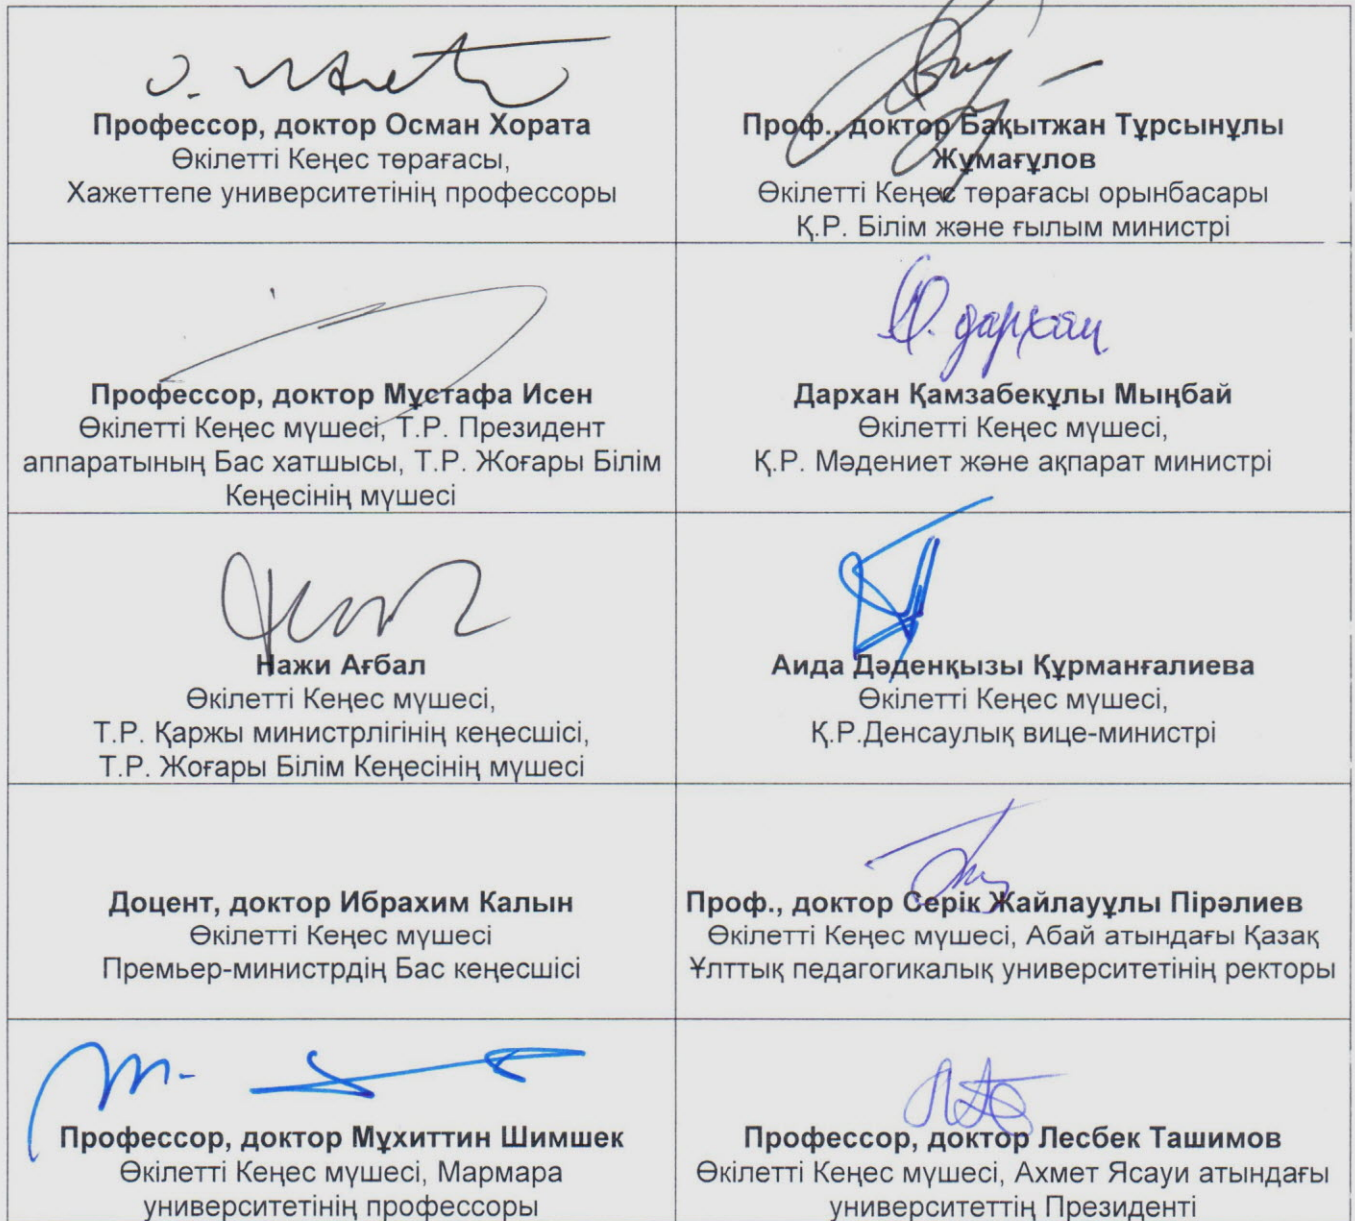 Профессор, доктор Осман Хората
Өкілетті Кеңес төрағасы,
Хажеттепе университетінің профессоры
Проф., доктор Бақытжан Тұрсынұлы
Жұмағұлов
Өкілетті Кеңес төрағасы орынбасары
Қ.Р. Білім және ғылым министрі
Профессор, доктор Мұстафа Исен
Өкілетті Кеңес мүшесі, Т.Р. Президент
аппаратының Бас хатшысы, Т.Р. Жоғары Білім
Кеңесінің мүшесі
дархан
Дархан Қамзабекұлы Мыңбай
Өкілетті Кеңес мүшесі,
Қ.Р. Мәдениет және ақпарат министрі
Нажи Ағбал
Өкілетті Кеңес мүшесі,
Т.Р. Қаржы министрлігінің кеңесшісі,
Т.Р. Жоғары Білім Кеңесінің мүшесі
Аида Дәденқызы Құрманғалиева
Өкілетті Кеңес мүшесі,
Қ.Р.Денсаулық вице-министрі
Доцент, доктор Ибрахим Калын
Өкілетті Кеңес мүшесі
Премьер-министрдің Бас кеңесшісі
Проф., доктор Серік Жайлауұлы Пірәлиев
Өкілетті Кеңес мүшесі, Абай атындағы Қазақ
Ұлттық педагогикалық университетінің ректоры
Профессор, доктор Мұхиттин Шимшек
Өкілетті Кеңес мүшесі, Мармара
университетінің профессоры
Профессор, доктор Лесбек Ташимов
Өкілетті Кеңес мүшесі, Ахмет Ясауи атындағы
университеттің Президенті